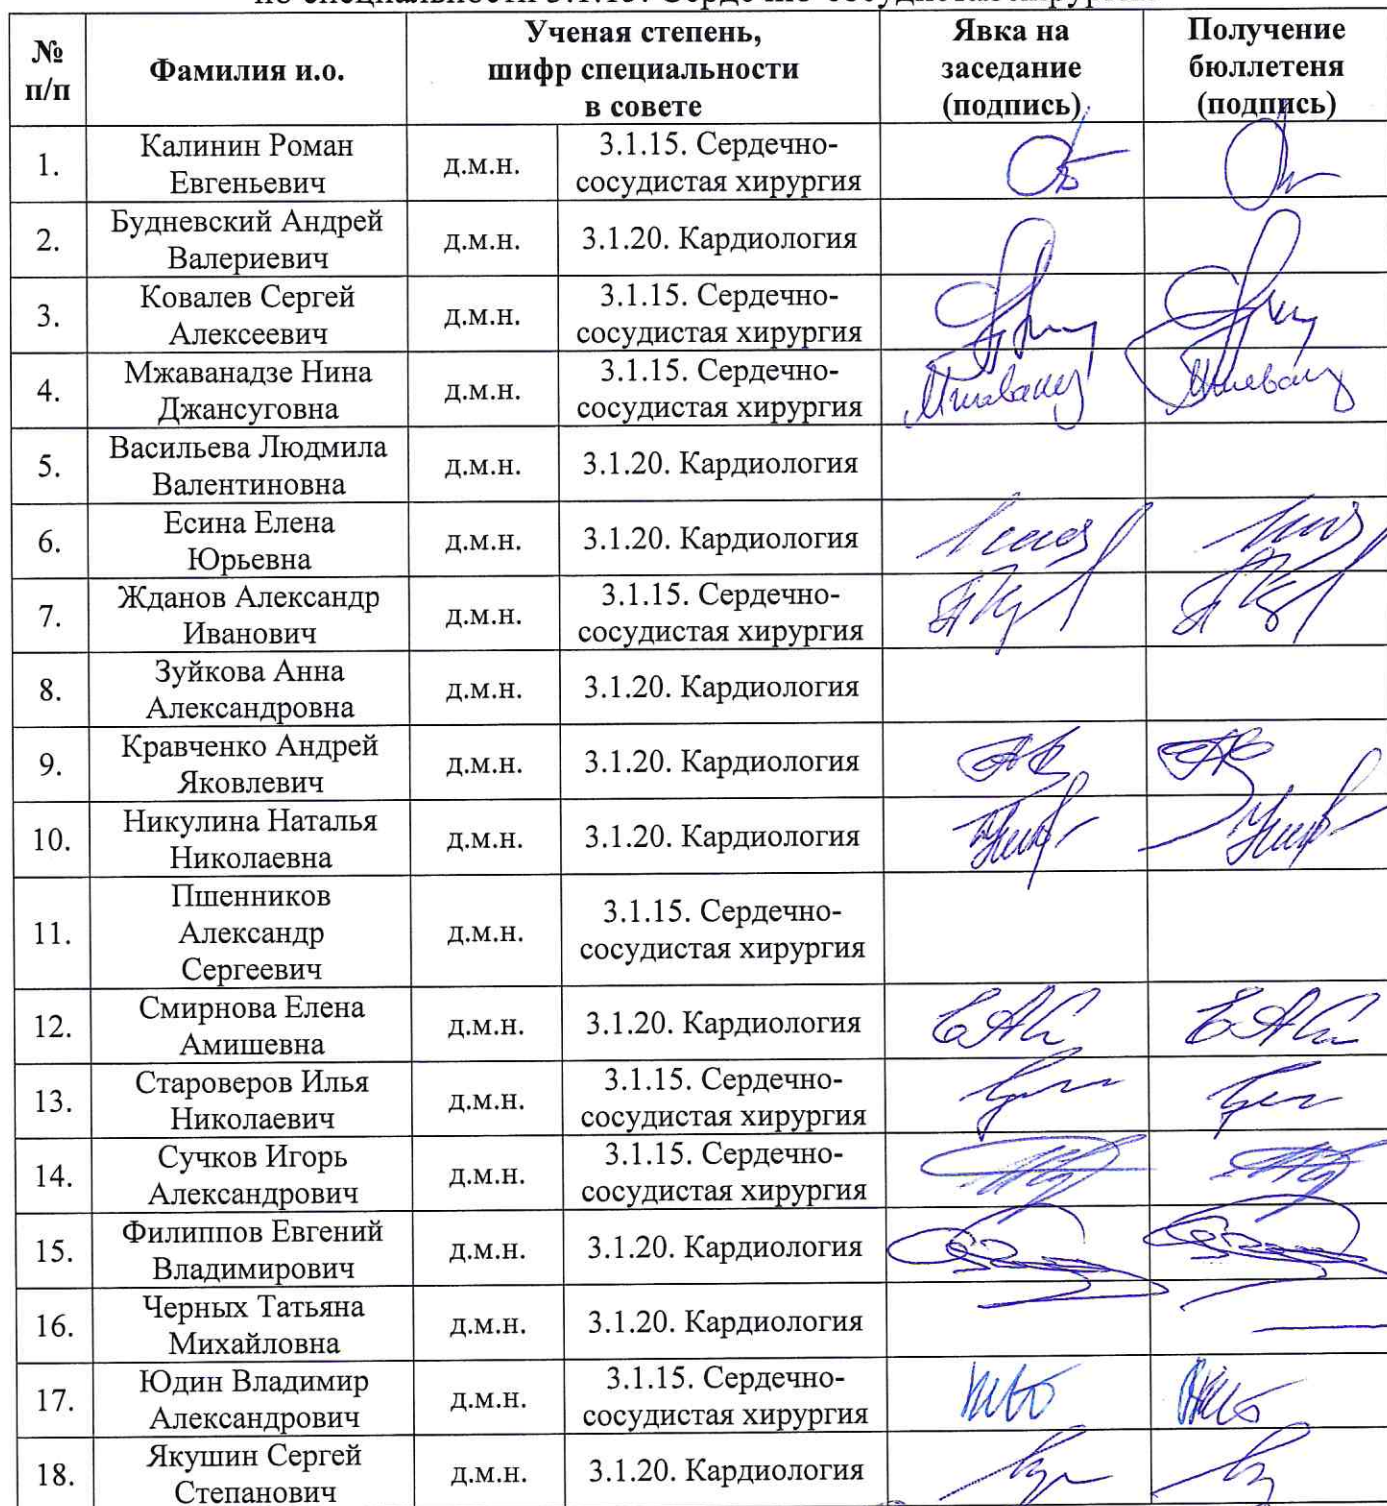 по специальности 3.1.15. Сердечно-сосудистая хирургия
№ п/п
Фамилия и.о.
Ученая степень,
шифр специальности
в совете
Явка на
заседание
(подпись)
Получение
бюллетеня
(подпись)
1.
Калинин Роман
Евгеньевич
д.м.н.
3.1.15. Сердечно-
сосудистая хирургия
2.
Будневский Андрей
Валериевич
д.м.н.
3.1.20. Кардиология
3.
Ковалев Сергей
Алексеевич
д.м.н.
3.1.15. Сердечно-
сосудистая хирургия
4.
Мжаванадзе Нина
Джансуговна
д.м.н.
3.1.15. Сердечно-
сосудистая хирургия
5.
Васильева Людмила
Валентиновна
д.м.н.
3.1.20. Кардиология
6.
Есина Елена
Юрьевна
д.м.н.
3.1.20. Кардиология
7.
Жданов Александр
Иванович
д.м.н.
3.1.15. Сердечно-
сосудистая хирургия
8.
Зуйкова Анна
Александровна
д.м.н.
3.1.20. Кардиология
9.
Кравченко Андрей
Яковлевич
д.м.н.
3.1.20. Кардиология
10.
Никулина Наталья
Николаевна
д.м.н.
3.1.20. Кардиология
11.
Пшенников
Александр
Сергеевич
д.м.н.
3.1.15. Сердечно-
сосудистая хирургия
12.
Смирнова Елена
Амишевна
д.м.н.
3.1.20. Кардиология
13.
Староверов Илья
Николаевич
д.м.н.
3.1.15. Сердечно-
сосудистая хирургия
14.
Сучков Игорь
Александрович
д.м.н.
3.1.15. Сердечно-
сосудистая хирургия
15.
Филиппов Евгений
Владимирович
д.м.н.
3.1.20. Кардиология
16.
Черных Татьяна
Михайловна
д.м.н.
3.1.20. Кардиология
17.
Юдин Владимир
Александрович
д.м.н.
3.1.15. Сердечно-
сосудистая хирургия
18.
Якушин Сергей
Степанович
д.м.н.
3.1.20. Кардиология